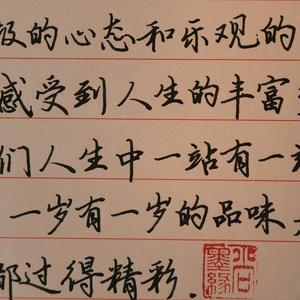 极的心态和乐观的
感受到人生的丰富
们人生中一站有一
一岁有一岁的品味
都过得精彩.